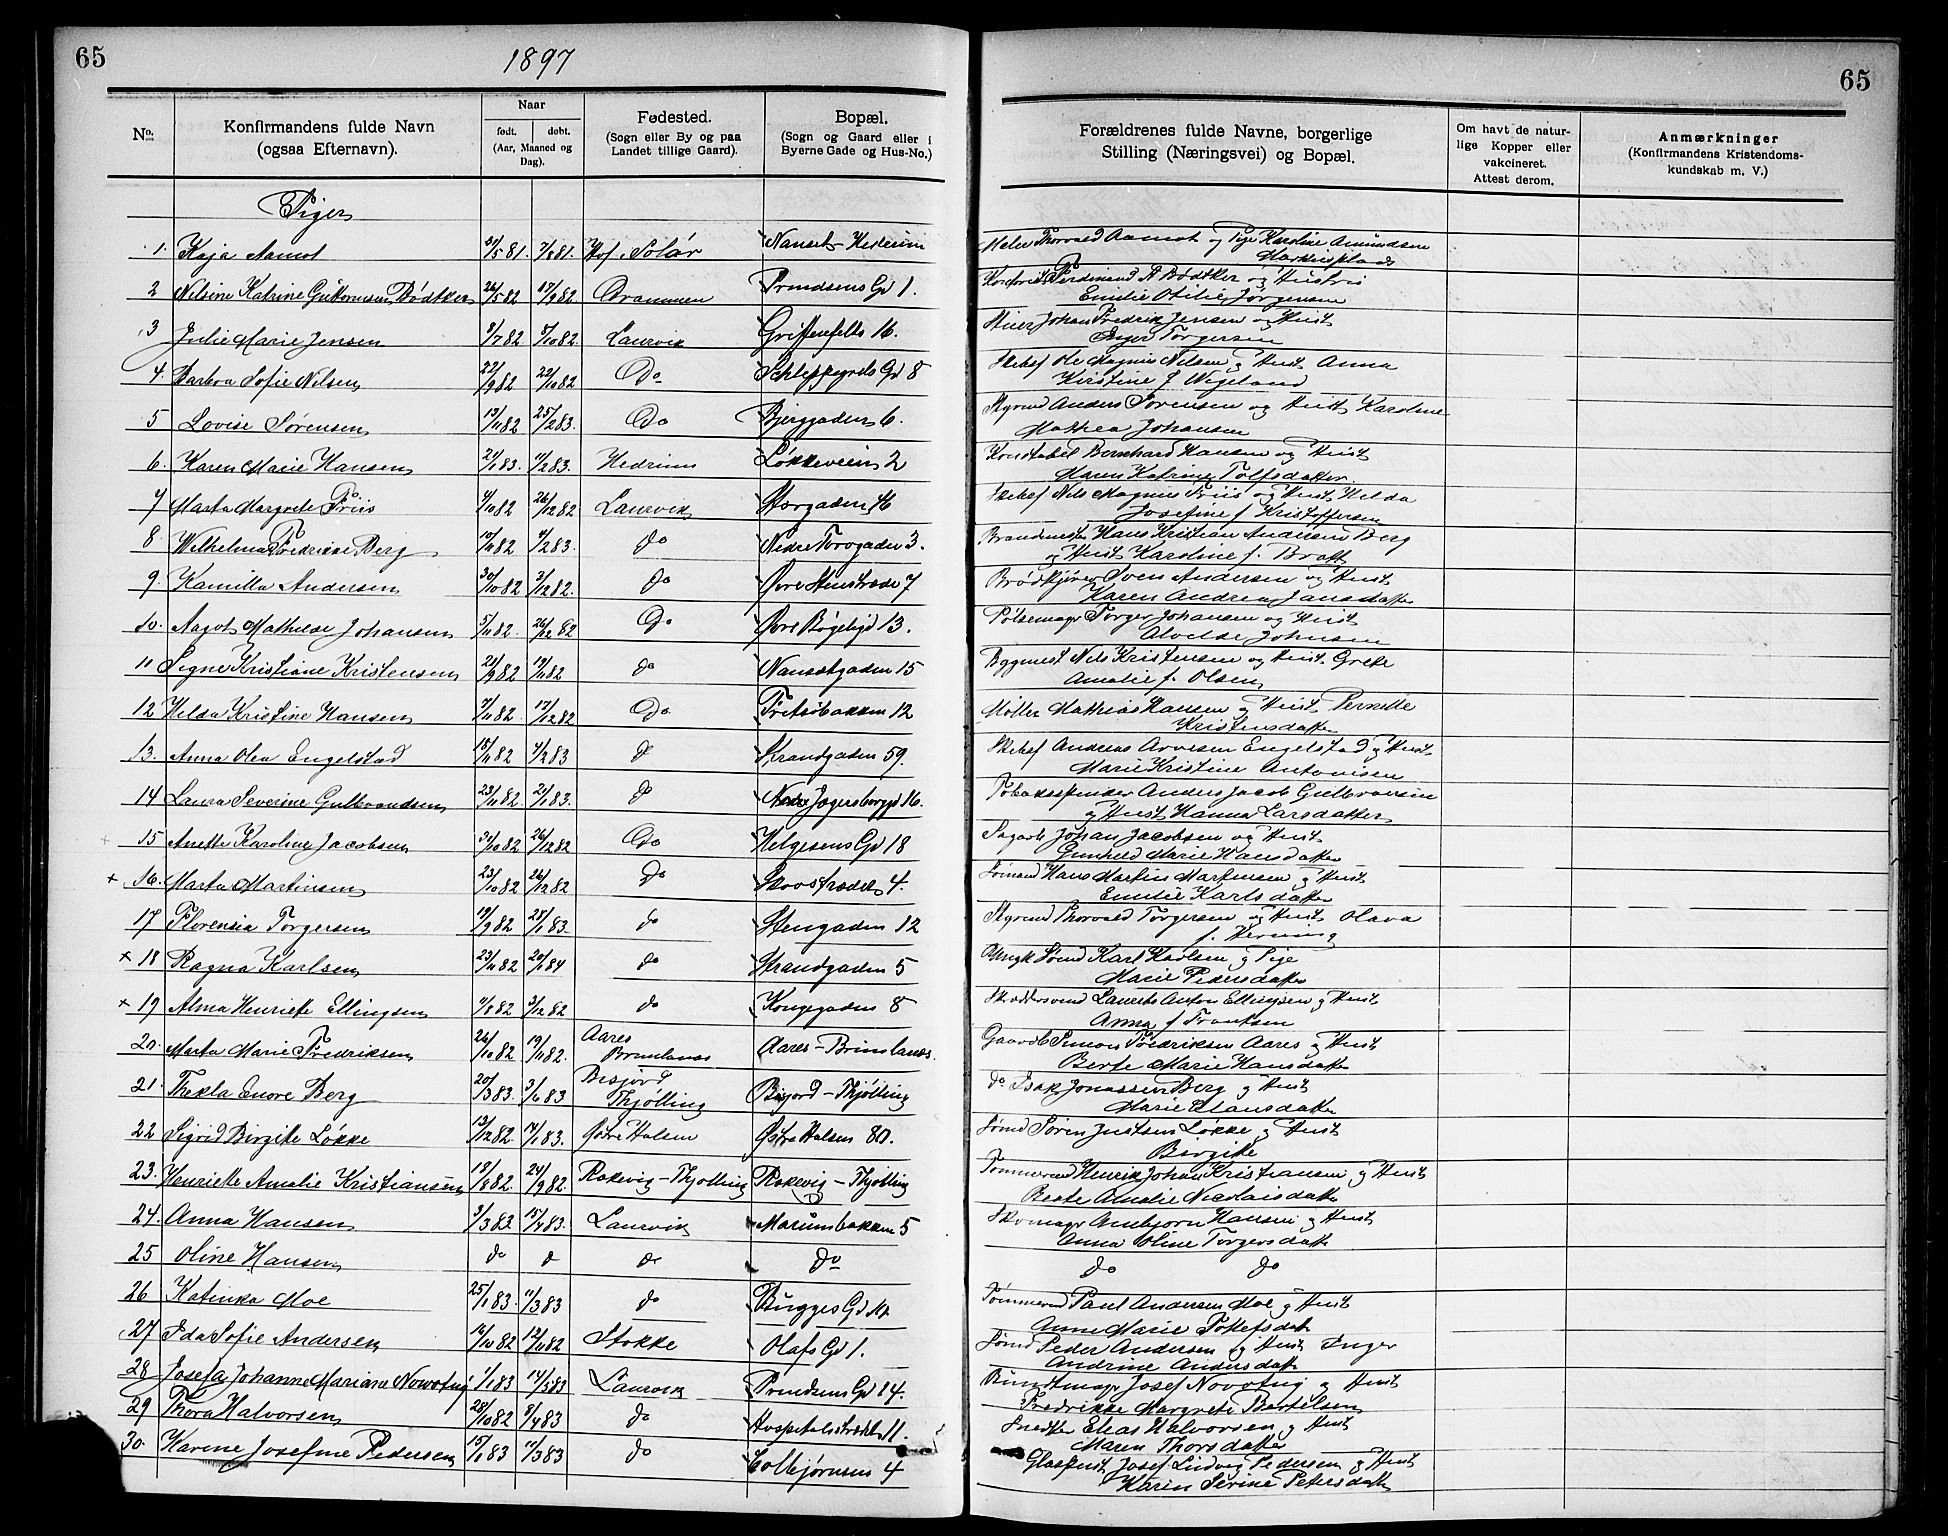 65
1897
65
No.
Konfirmandens fulde Navn
(ogsaa Efternavn).
Naar
født. døbt.
(Aar, Maaned og Dag).
Fødested.
(Sogn eller By og paa
Landet tillige Gaard).
Bopæl.
(Sogn og Gaard eller i
Byerne Gade og Hus-No.)
Forældrenes fulde Navne, borgerlige
Stilling (Næringsvei) og Bopæl.
Om havt de natur-
lige Kopper eller
vakcineret.
Attest derom.
Anmærkninger
(Konfirmandens Kristendoms-
kundskab m. V.)
Piger
1. Kaja Aamot /5 81. 7/8 81. Hof, Solør Nanset Hedrum Maler Thorvald Aamot og Pige Karoline Amundsen
2 Nelsine Katrine Guttormsen Bødtker 26/5 82 17/9 82. Drammen Prindsens Gd 1. Ferdinand A Bødtker og Hustru
Emilie Otilie Jørgensen
3 Julie Marie Jensen 8/7 82 8/10 82. Laurvik Griffenfelts 16. Johan Fredrik Jensen og Hust
Inger Torgersen
4. Barbra Sofie Nilsen 22/9 82 22/10 82 Do Schleppegrels Gd 8 Skibsf Ole Magnus Nilsen og Hust Anna
Kristine f. Wegeland
5 Lovise Sørensen 13/11 82 25/2 83. Do Bjerggaden 6. Styrmd Anders Sørensen og Hust Karoline
Mathea Johansen
6. Karen Marie Hansen 21/1 83. 11/2 83. Hedrum Løkkeveien 2 Konstabel Bernhard Hansen og Hust
Maren Katrine Tolfsdatter.
7 Marta Margrete Friis 4/10 82 26/12 82 Laurvik Storgaden 46 Skibsf Nils Magnus Friis og Hust Helda
Josefine f Kristoffersen
8. Wilhelmine Fredrikke Berg 10/11 82 4/2 83. do Nedre Torvgaden 3. Brandmester Hans Kristian Andersen Berg
og Hust Karoline f. Bratt
9. Kamilla Andersen 30/10 82 3/12 82. do Øvre Stenstræde 7 Brødkjører Sven Andersen og Hust
Karen Andrea Jansdatter
10. Aagot Mathilde Johansen 5/11 82. 26/12 82 Do Øvre Bøgeligd 13. Pølsemager Torger Johansen og Hust
Alvilde Johnsen
11 Signe Kristiane Kristensen 21/9 82 19/11 82 do Nansetgaden 15 Bygmest Nils Kristensen og Hust Grete
Amalie f. Olsen
12 Helda Kristine Hansen 7/11 82 17/12 82 Do. Fritzøbakken 12 Møller Mathias Hansen og Hust Pernille
Kristensdatter
13. Anna Olea Engelstad 18/11 82 4/2 83 do Strandgaden 59. Skibsf Andreas Arvesen Engelstad og Hust
Marie Kristine Antonisen
14 Laura Severine Gulbrandsen 23/11 82. 21/1 83. do Nedre Jegersborggd 16. Tobaksspinder Anders Jacob Gulbransen
og Hust Hanna Larsdatter
15 Anette Karoline Jacobsen 30/10 82 26/12 82 Do Helgesens Gd 18 Sagarb Johan Jacobsen og Hust
Gunhild Marie Hansdatter
+ 16. Marta Martinsen 23/10 82 26/12 82 Do Skovstrædet 4. Sømand Hans Martin Martinsen og Hust
Emilie Karlsdatter
17 Florensia Torgersen 19/9 82 28/1 83. do Stengaden 12 Styrmd Thorvald Torgersen og Hust Olava
f. Henning
+ 18 Ragna Karlsen 23/11 82 20/1 84 do Strandgaden 5 Ungk Sømd Karl Karlsen og Pige
Marie Pedersdatter
+ 19 Alma Henriette Ellingsen 11/8 82 3/12 82 do Kongegaden 8 Skræddersvend Laurits Anton Ellingsen og Hust
Anna f Frantsen
20. Marta Marie Fredriksen 26/10 82 19/11 82. Aares Brunlanæs Aares - Brunlanæs. Gaardb Simon Fredriksen Aares og Hust
Berte Marie Hansdatter
21. Thekla Enore Berg 20/3 83. 3/6 83 Bisjord Thjølling Bisjord - Thjølling do Isak Jonassen Berg og Hust
Marie Clausdatter
22 Sigrid Birgitte Løkke 13/12 82. 14/1 83. Østre Halsen Østre Halsen 80. Sømd Søren Justsen Løkke og Hust
Birgitte
23. Henriette Amalie Kristiansen 18/8 82. 24/9 82. Rakevig - Thjølling Rakevig - Thjølling Tømmermd Henrik Johan Kristiansen og Hust
Berte Amalie Nicolaisdatter
24. Anna Hansen 3/3 83. 15/4 83. Laurvik Marumbakken 5 Skomager Anbjørn Hansen og Hust
Anna Oline Torgersdatter
25 Oline Hansen do do do do do do
26 Katinka Moe 25/1 83. 11/3 83 do Bugges Gd Tømmermd Paul Andersen Moe og Hust
Anne Marie Tollefsdatter
27 Ida Sofie Andersen 16/10 82 12/11 82 Stokke Olafs Gd 1. Sømd Peder Andersen og Hust Inger
Andrine Andersdatter
28 Josefa Johanne Mariane Nowotny 1/1 83 14/5 83 Laurvik Prindsens Gd 14. Bundtmager Josef Nowotny og Hust
Fredrikke Margrete Bertelsen
29 Thora Halvorsen 28/10 82 8/4 83 do Hospitalstrædet 11. Snedker Elias Halvorsen og Hust
Maren Thorsdatter
30. Karine Josefine Pedersen 15/1 83 11/3 83 do Colbjørnsens 4 Glaspust Josef Ludvig Pedersen og Hust
Karen Sevine Petersdatter